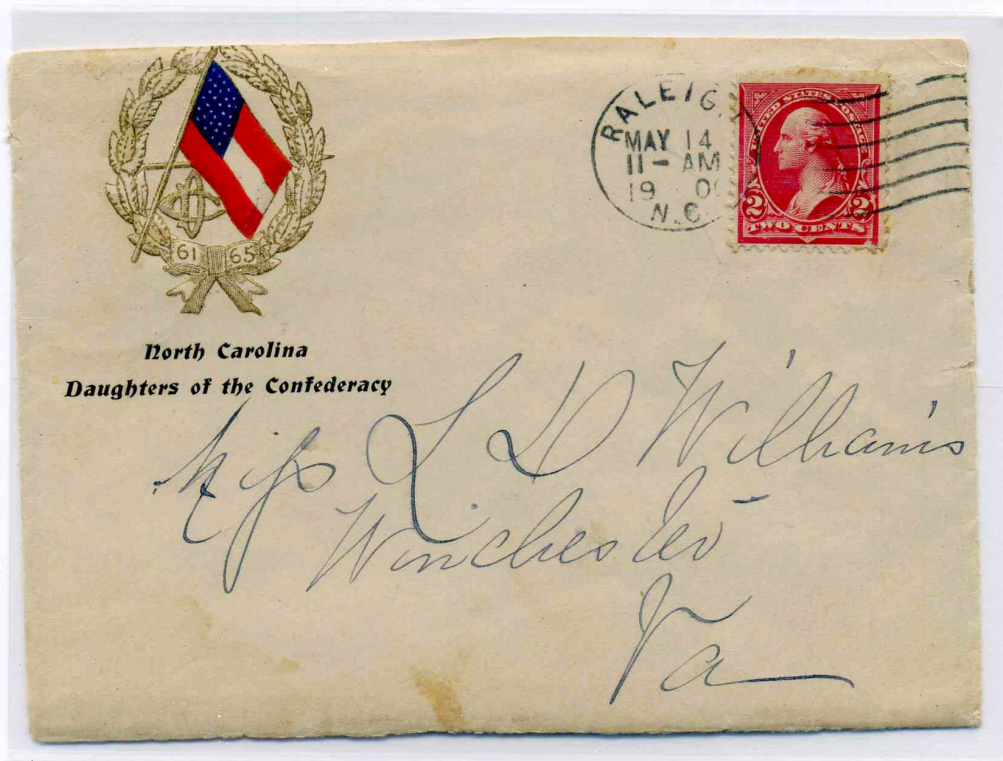 61 65
North Carolina
Daughters of the Confederacy
RALEIGH
MAY 14
11 - AM
19 00
N.C.
UNITED STATES POSTAGE
2 2
TWO CENTS
Miss L D Williams
Winchester
Va